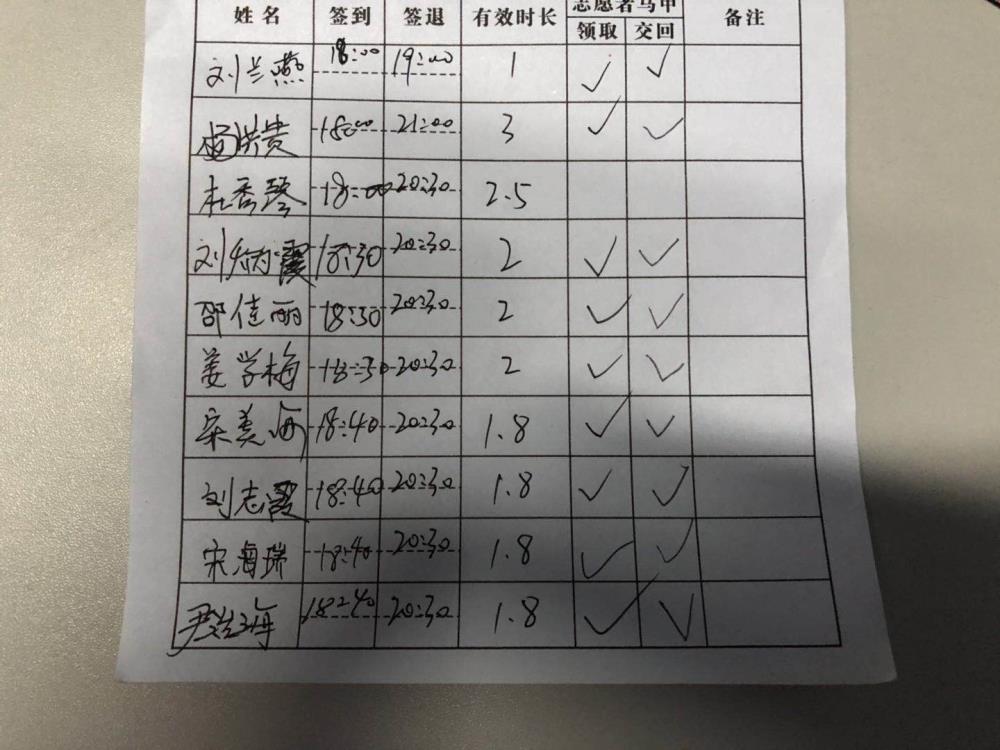 姓名 签到 签退 有效时长 志愿者马甲 备注
领取 交回
刘兰燕 18:00 19:00 1 ✓ ✓
杨洪贵 18:00 21:00 3 ✓ ✓
杜秀琴 18:00 20:30 2.5
刘 霞 18:30 20:30 2 ✓ ✓
邵佳丽 18:30 20:30 2 ✓ ✓
姜学梅 18:30 20:30 2 ✓ ✓
宋美 18:40 20:30 1.8 ✓ ✓
刘志霞 18:40 20:30 1.8 ✓ ✓
宋海瑞 18:40 20:30 1.8 ✓ ✓
尹 海 18:40 20:30 1.8 ✓ ✓